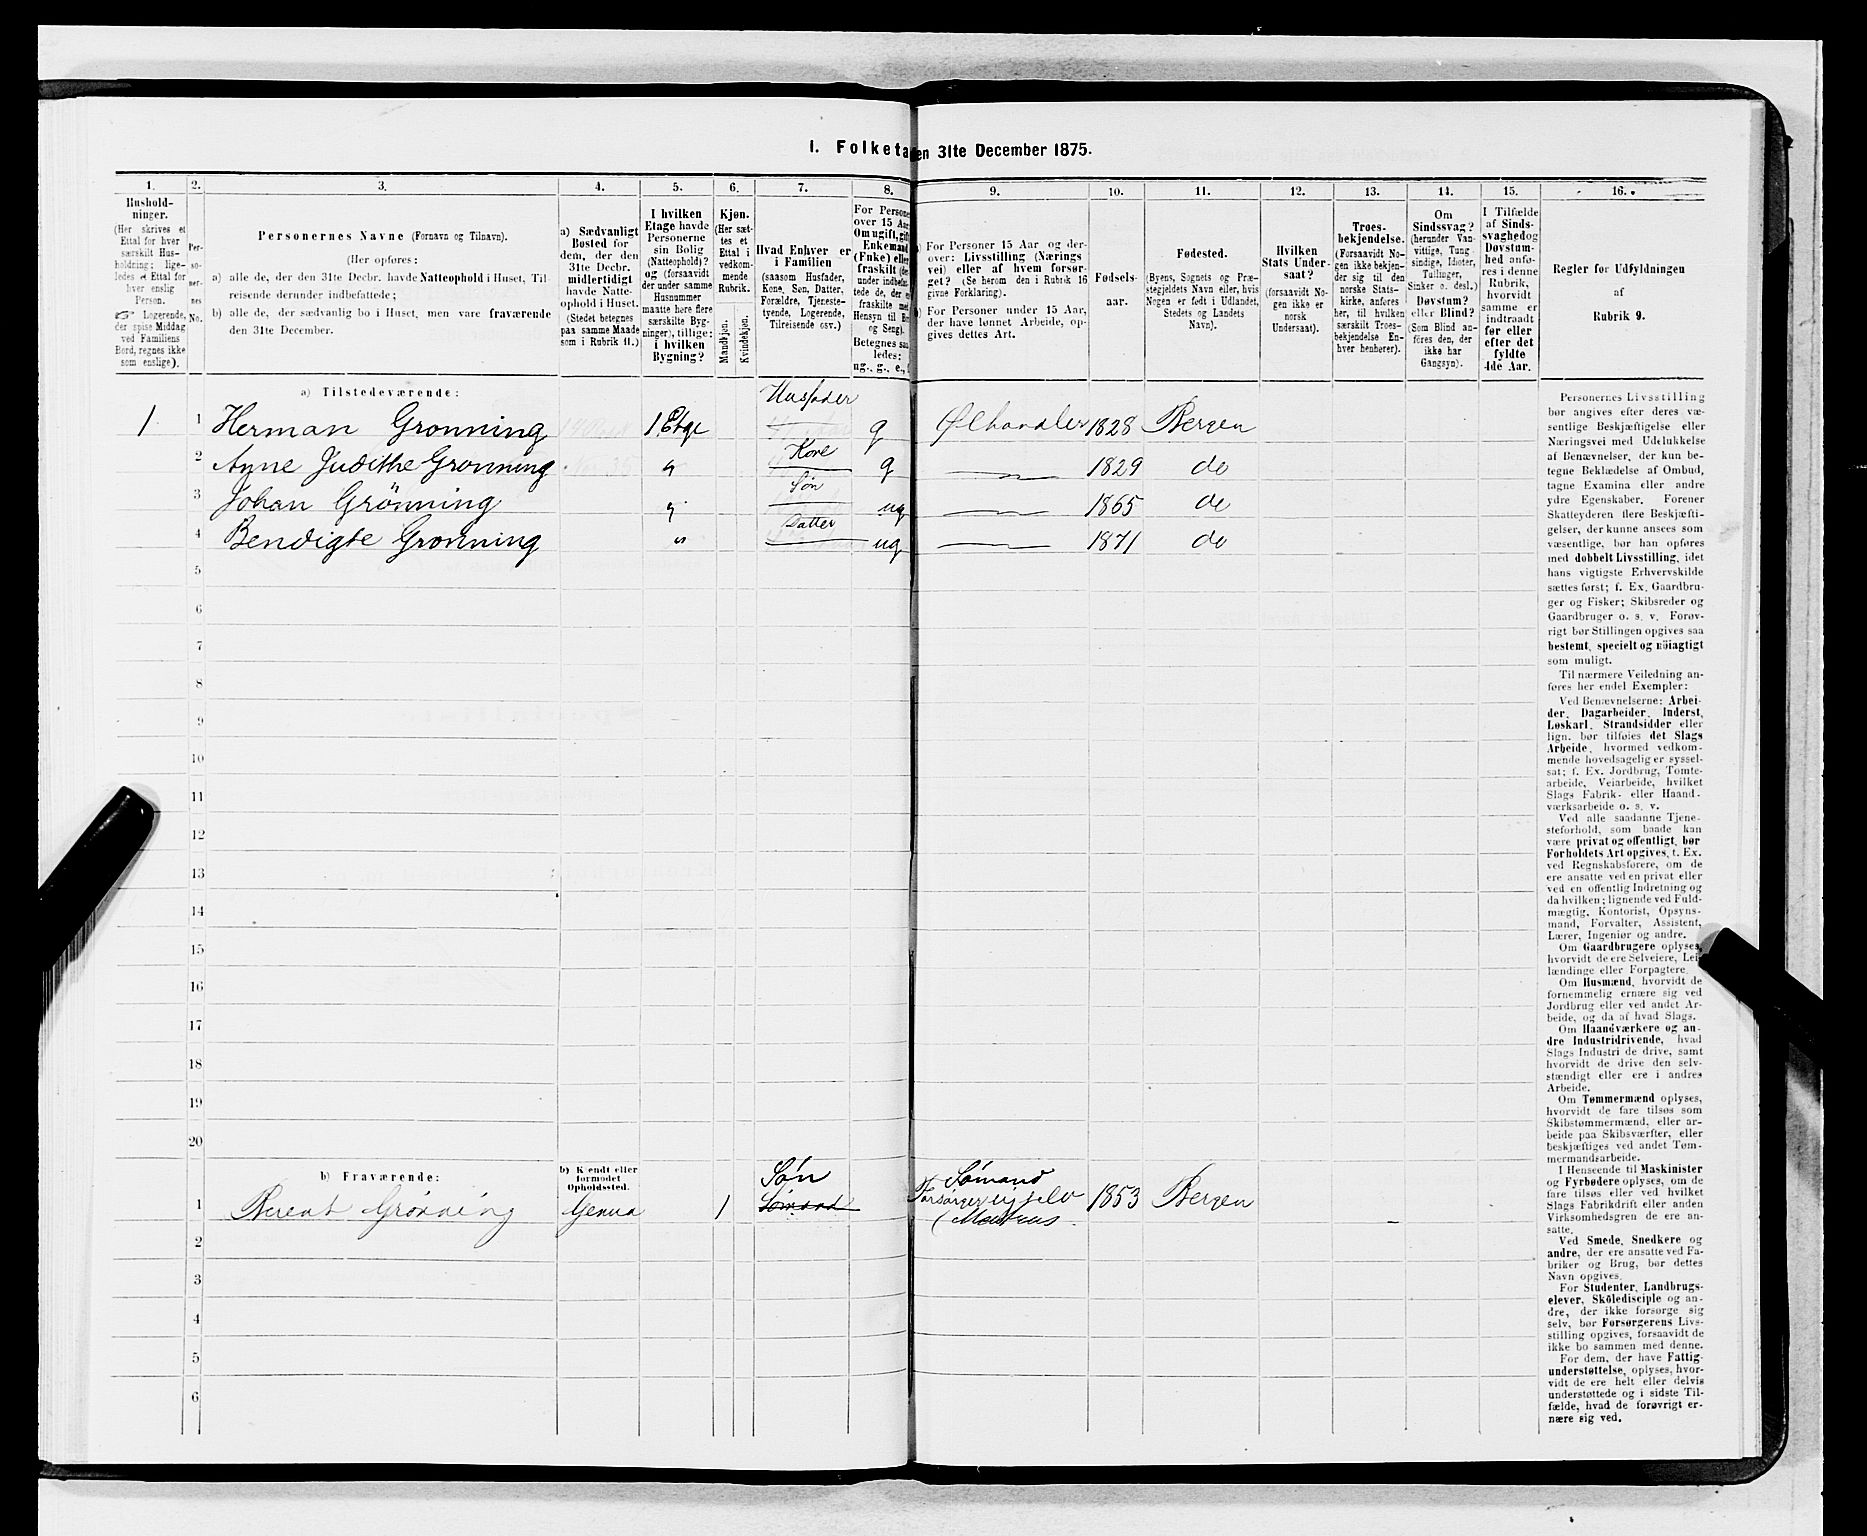 1. Folketæ
en 31te December 1875.
1.
2.
3.
4.
5.
6.
7.
8.
9.
10.
11.
12.
13.
14.
15.
16.
Hushold-
ninger.
(Her skrives et
Ettal for hver
særskilt Hus-
holdning; lige-
ledes et Ettal for
hver enslig
Person.
☞ Logerende,
der spise Middag
ved Familiens
Bord, regnes ikke
som enslige).
Per-
so-
ner-
nes
No.
Personernes Navne (Fornavn og Tilnavn).
(Her opføres:
a) alle de, der den 31te Decbr. havde Natteophold i Huset, Til-
reisende derunder indbefattede;
b) alle de, der sædvanlig bo i Huset, men vare fraværende
den 31te December.
a) Sædvanligt
Bosted for
dem, der den
31te Decbr.
midlertidigt
havde Natte-
ophold i Huset.
(Stedet betegnes
paa samme Maade
som i Rubrik 11.)
I hvilken
Etage havde
Personerne
sin Bolig
(Natteophold)?
og (forsaavidt
der under samme
Husnummer
maatte høre flere
særskilte Byg-
ninger), tillige:
i hvilken
Bygning?
Kjøn.
(Her sæt-
tes et
Ettal i
vedkom-
mende
Rubrik.
Mandkjøn.
Kvindekjøn.
Hvad Enhver er
i Familien
(saasom Husfader,
Kone, Søn, Datter,
Forældre, Tjeneste-
tyende, Logerende,
Tilreisende osv.)
For Persone
over 15 Aar
Om ugift, gift
Enkemand
(Enke) eller
fraskilt (der-
under indbefat-
tede de, der e
fraskilte med
Hensyn til Bo
og Seng).
Betegnes saa
ledes:
ug., g., e., f
a) For Personer 15 Aar og der-
over: Livsstilling (Nærings
vei) eller af hvem forsør-
get? (Se herom den i Rubrik 16
givne Forklaring).
b) For Personer under 15 Aar,
der have lønnet Arbeide, op-
gives dettes Art.
Fødsels-
aar.
Fødested.
(Byens, Sognets og Præ-
stegjeldets Navn eller, hvis
Nogen er født i Udlandet,
Stedets og Landets
Navn).
Hvilken
Stats Under-
saat?
(forsaavidt No-
gen ikke er
norsk
Undersaat).
Troes-
bekjendelse.
(Forsaavidt No-
gen ikke bekjen-
der sig til den
norske Stats-
kirke, anføres
her, til hvilken
særskilt Troes-
bekjendelse En-
hver henhører).
Om
Sindssvag?
(herunder Van-
vittige, Tung-
sindige, Idioter,
Tullinger,
Sinker o. desl.)
Døvstum?
eller Blind?
(Som Blind an-
føres den, der
ikke har
Gangsyn).
I Tilfælde
af Sinds-
svaghed og
Døvstum-
hed anfø-
res i denne
Rubrik,
hvorvidt
samme er
indtraadt
før eller
efter det
fyldte
4de Aar.
Regler for Udfyldningen
af
Rubrik 9.
a) Tilstedeværende:
1 1 Herman Gronning 1 Etge Husfader g Ølhandler 1828 Bergen
2 Anne Judithe Gronning " Kone g 1829 do
3 Johan Grönning " Søn ug 1865 do
4 Bendigte Gronning " Datter ug 1871 do
5
6
7
8
9
10
11
12
13
14
15
16
17
18
19
20
b) Fraværende:
b) Kjendt eller
formodet
Opholdssted.
Søn
Sømand
1 Berent Grönning Genua 1 Sømand Forsørger sig selv 1853 Bergen
(Matros
2
3
4
5
6
Personernes Livsstilling
bør angives efter deres væ-
sentlige Beskjæftigelse eller
Næringsvei med Udelukkelse
af Benævnelser, der kun be-
tegne Beklædelse af Ombud,
tagne Examina eller andre
ydre Egenskaber. Forener
Skatteyderen flere Beskjæfti-
gelser, der kunne ansees som
væsentlige, bør han opføres
med dobbelt Livsstilling, idet
hans vigtigste Erhvervskilde
sættes først; f. Ex. Gaardbru-
ger og Fisker; Skibsreder og
Gaardbruger o. s. v. Forøv-
rigt bør Stillingen opgives saa
bestemt, specielt og nöiagtigt
som muligt.
Til nærmere Veiledning an-
føres her endel Exempler:
Ved Benævnelserne: Arbei-
der, Dagarbeider, Inderst,
Løskarl, Strandsidder eller
lign. bør tilføies det Slags
Arbeide, hvormed vedkom-
mende hovedsagelig er syssel-
sat; f. Ex. Jordbrug, Tomte-
arbeide, Veiarbeide, hvilket
Slags Fabrik- eller Haand-
værksarbeide o. s. v.
Ved alle saadanne Tjene-
steforhold, som baade kan
være privat og offentligt, bør
Forholdets Art opgives, t. Ex.
ved Regnskabsførere, om de
ere ansatte ved en privat eller
ved en offentlig Indretning og
da hvilken; lignende ved Fuld-
mægtig, Kontorist, Opsyns-
mand, Forvalter, Assistent,
Lærer, Ingeniør og andre.
Om Gaardbrugere oplyses,
hvorvidt de ere Selveiere, Lei-
lændinge eller Forpagtere.
Om Husmænd, hvorvidt de
fornemmelig ernære sig ved
Jordbrug eller ved andet Ar-
beide, og da af hvad Slags.
Om Haandværkere og an-
dre Industridrivende, hvad
Slags Industri de drive, samt
hvorvidt de drive den selv-
stændigt eller ere i andres
Arbeide.
Om Tømmermænd oplyses,
hvorvidt de fare tilsøs som
Skibstømmermænd, eller ar-
beide paa Skibsværfter, eller
beskjæftiges ved andet Tøm-
mermandsarbeide.
I Henseende til Maskinister
og Fyrbødere oplyses, om de
fare tilsøs eller ved hvilket
Slags Fabrikdrift eller anden
Virksomhedsgren de ere an-
satte.
Ved Smede, Snedkere og
andre, der ere ansatte ved Fa-
briker og Brug, bør dettes
Navn opgives.
For Studenter, Landbrugs-
elever, Skoledisciple og an-
dre, der ikke forsørge sig
selv, bør Forsørgerens Livs-
stilling opgives, forsaavidt de
ikke bo sammen med denne.
For dem, der have Fattig-
understøttelse, oplyses, hvor-
vidt de ere helt eller delvis
understøttede og i sidste Til-
fælde, hvad de forøvrigt er-
nære sig ved.